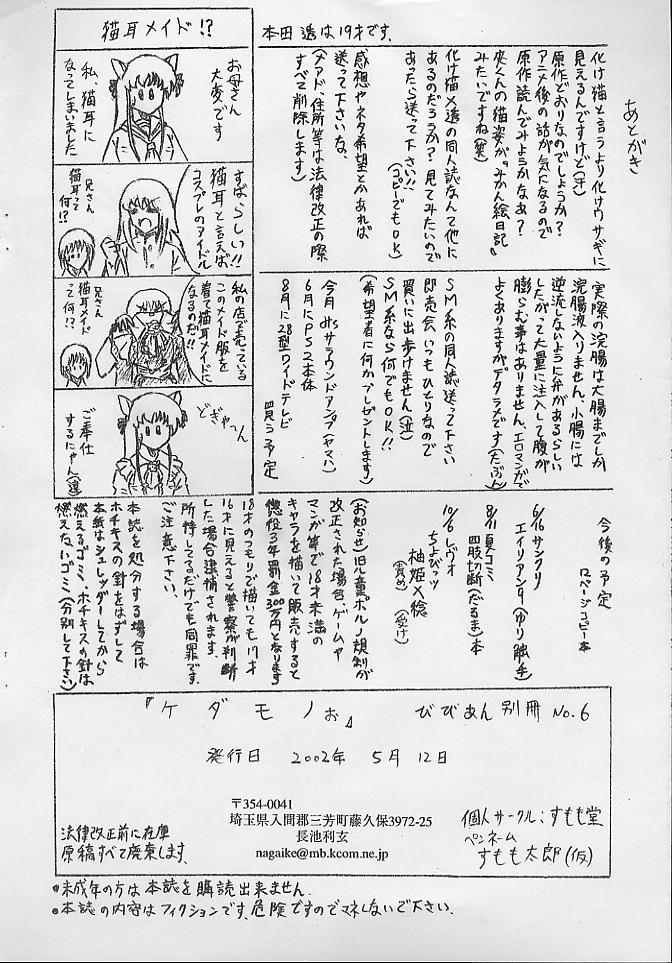 あとがき
本田 透は19才です。
化け猫と言うより化けウサギに
見えるんですけど(汗)
原作どおりなのでしょうか?
アニメ後の話が気になるので
原作読んでみようかなぁ?
夾くんの猫姿が『みかん絵日記』
みたいですね(笑)
化け猫×透の同人誌なんて他に
あるのだろうか?見てみたいので
あったら送って下さい!!
(コピーでもOK)
感想やネタ希望とかあれば
送って下さいな。
(メアド、住所等は法律改正の際
すべて削除します)
猫耳メイド!?
お母さん
大変です
私、猫耳に
なってしまいました
すばらしい!!
猫耳と言えば
コスプレのアイドル
兄さん
猫耳って
何!?
私の店で売っている
このメイド服を
着て猫耳メイドに
なるのだ!!
兄さん
猫耳メイド
って何!?
どぎゃーん
ご奉仕
するにゃん(違)
実際の浣腸は大腸までしか
浣腸液入りません。小腸には
逆流しないように弁があるらしい
したがって大量に注入して腹が
膨らむ事はありません。エロマンガで
よくありますがデタラメです(たぶん)
SM系の同人誌送って下さい
即売会いつもひとりなので
買いに出歩けません(泣)
SM系なら何でもOK!!
(希望者に何かプレゼントします)
今月 サラウンドアンプ(ヤマハ)
6月にPS2本体
8月に28型ワイドテレビ
買う予定
今後の予定
ページコピー本
6/16 サンクリ
エイリアンタ(ゆり触手)
8/11 夏コミ
四肢切断(だるま)本
10/6 レヴォ
ちょびっツ
柚姫×稔
(責め)(受け)
(お知らせ)旧児童ポルノ規制が
改正された場合、ゲームや
マンガ等で18才未満の
キャラを描いて販売すると
懲役3年罰金300万円となります
18才のつもりで描いても17才
16才に見えると警察が判断
した場合逮捕されます。
所持してるだけでも同罪です。
ご注意下さい。
本誌を処分する場合は
ホチキスの針をはずして
本紙はシュレッダーしてから
燃えるゴミ、ホチキスの針は
燃えないゴミ(分別して下さい)
『ケダモノぉ』 びびあん別冊 No.6
発行日 2002年 5月 12日
〒354-0041
埼玉県入間郡三芳町藤久保3972-25
長池利玄
nagaike@mb.kcom.ne.jp
個人サークル:すもも堂
ペンネーム
すもも太郎(仮)
法律改正前に在庫
原稿すべて廃棄します。
●未成年の方は本誌を購読出来ません。
●本誌の内容はフィクションです。危険ですのでマネしないで下さい。